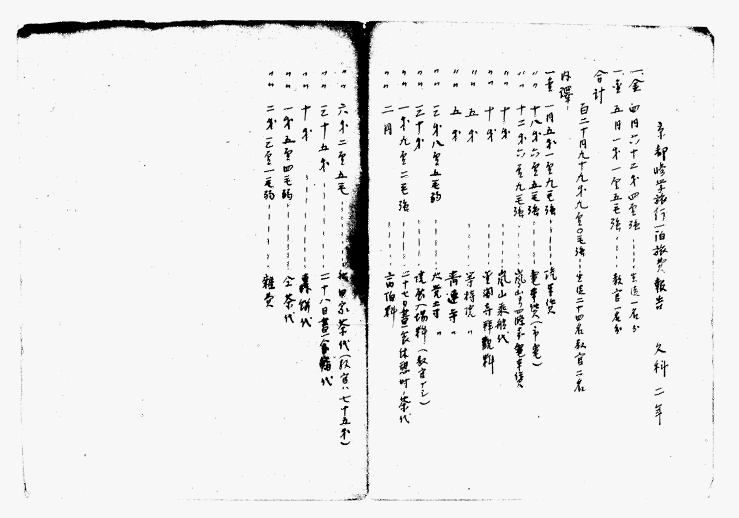 京都修学旅行一泊旅費報告 文科二年
一、金 四円六十二銭四厘強……生徒一名分
一、金 五円一銭一厘五毛強……教官一名分
合計
百二十円九十九銭九厘〇毛強……生徒二十四名教官二名
内訳
一金 一円五銭一厘九毛強……汽車賃
〃〃 十八銭六厘五毛強……電車賃(市電)
〃〃 十二銭六厘九毛強……嵐山四條電車賃
〃〃 十銭……嵐山乗船代
〃〃 十銭……金閣寺拝観料
〃〃 五銭……等持院〃
〃〃 五銭……青蓮寺〃
〃〃 三銭八厘五毛弱……大覚寺〃
〃〃 三十銭……入場料(教官ナシ)
〃〃 一銭九厘二毛強……二十七日昼食休憩所茶代
〃〃 二円……宿泊料
〃〃 六銭二厘五毛……茶代(教官ハ七十五銭)
〃〃 三十五銭……二十八日昼食代
〃〃 十銭……餅代
〃〃 一銭五厘四毛弱……仝茶代
〃〃 二銭三厘一毛弱……雑費